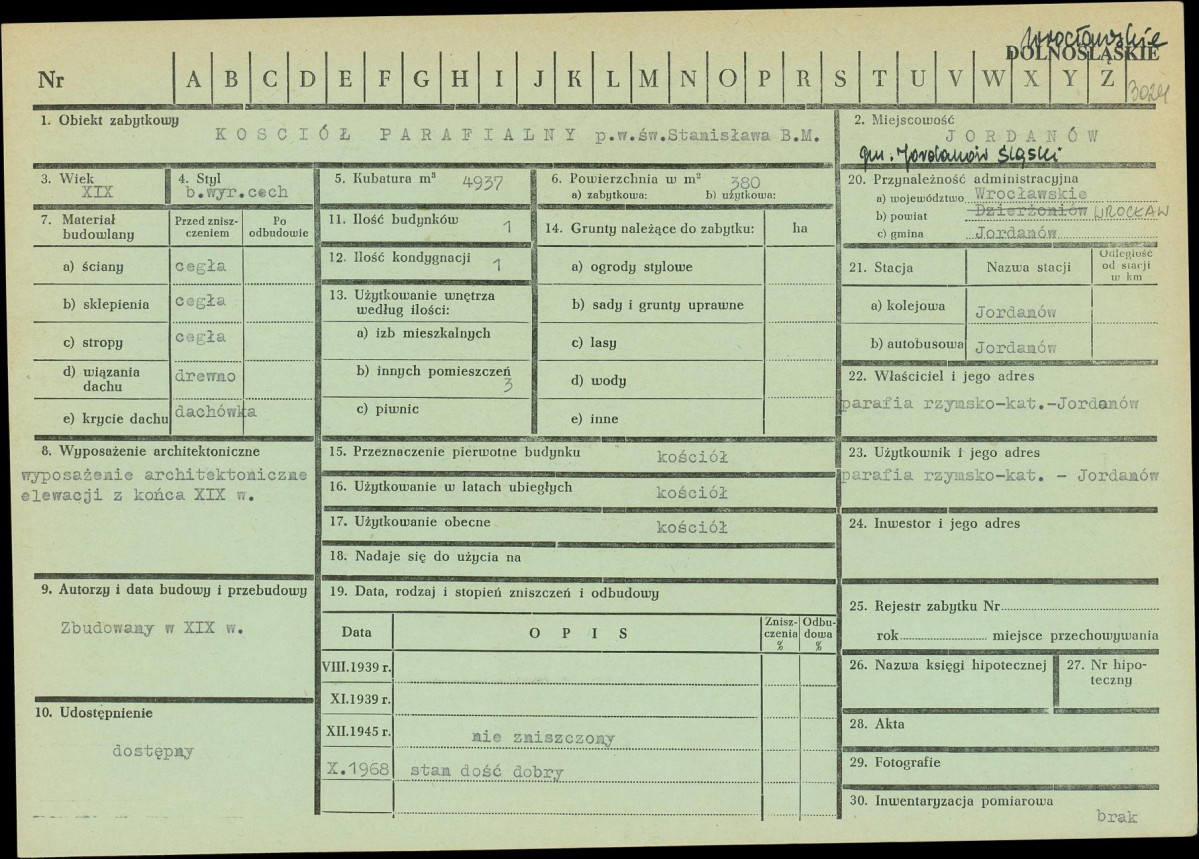 wrocławskie
DOLNOŚLĄSKIE
Nr A B C D E F G H I J K L M N O P R S T U V W X Y Z
3024
1. Obiekt zabytkowy
KOSCIÓŁ PARAFIALNY p.w.św.Stanisława B.M.
2. Miejscowość
JORDANÓW
gm. Jordanów Śląski
3. Wiek
XIX
4. Styl
b.wyr.cech
5. Kubatura m³ 4937
6. Powierzchnia w m² 380
a) zabytkowa: b) użytkowa:
7. Materiał budowlany
Przed zniszczeniem
Po odbudowie
a) ściany cegła
b) sklepienia cegła
c) stropy cegła
d) wiązania dachu drewno
e) krycie dachu dachówka
8. Wyposażenie architektoniczne
wyposażenie architektoniczne
elewacji z końca XIX w.
9. Autorzy i data budowy i przebudowy
Zbudowany w XIX w.
10. Udostępnienie
dostępny
11. Ilość budynków 1
12. Ilość kondygnacji 1
13. Użytkowanie wnętrza
według ilości:
a) izb mieszkalnych
b) innych pomieszczeń
3
c) piwnic
14. Grunty należące do zabytku: ha
a) ogrody stylowe
b) sady i grunty uprawne
c) lasy
d) wody
e) inne
15. Przeznaczenie pierwotne budynku kościół
16. Użytkowanie w latach ubiegłych kościół
17. Użytkowanie obecne kościół
18. Nadaje się do użycia na
19. Data, rodzaj i stopień zniszczeń i odbudowy
Data OPIS Zniszczenia % Odbudowa %
VIII.1939 r.
XI.1939 r.
XII.1945 r. nie zniszczony
X.1968 stan dość dobry
20. Przynależność administracyjna
a) województwo Wrocławskie
b) powiat Dzierżoniów WROCŁAW
c) gmina Jordanów
21. Stacja Nazwa stacji Odległość od stacji w km
a) kolejowa Jordanów
b) autobusowa Jordanów
22. Właściciel i jego adres
parafia rzymsko-kat.-Jordanów
23. Użytkownik i jego adres
parafia rzymsko-kat. - Jordanów
24. Inwestor i jego adres
25. Rejestr zabytku Nr
rok miejsce przechowywania
26. Nazwa księgi hipotecznej
27. Nr hipoteczny
28. Akta
29. Fotografie
30. Inwentaryzacja pomiarowa
brak